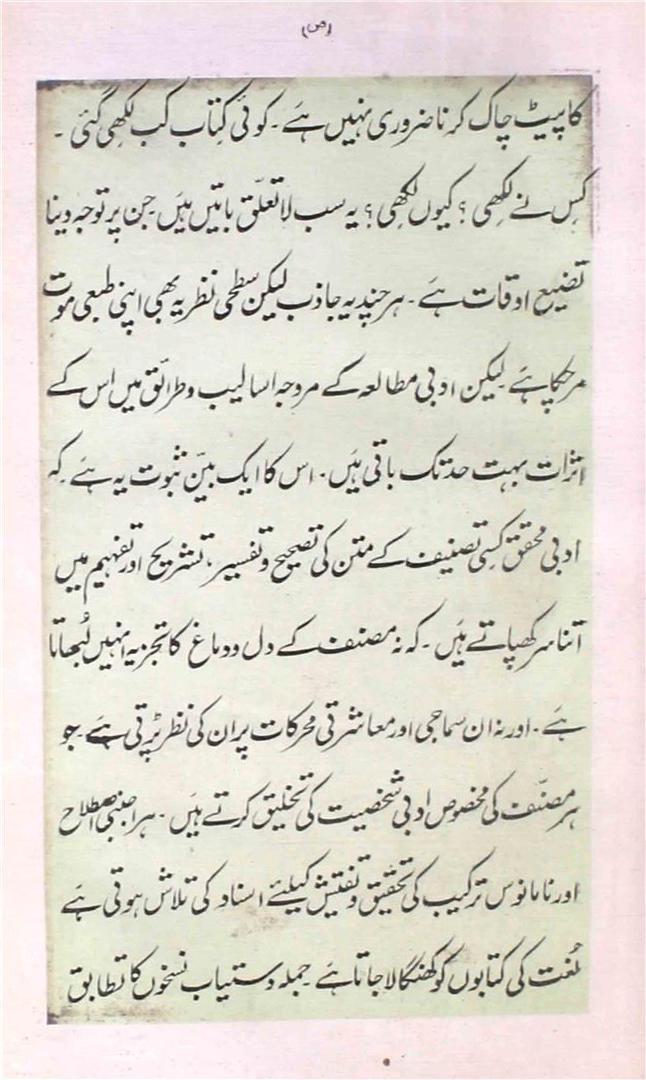 (ص)
کا پیٹ چاک کرنا ضروری نہیں ہے۔ کوئی کتاب کب لکھی گئی۔
کِس نے لکھی؟ کیوں لکھی؟ یہ سب لا تعلّق باتیں ہیں جن پر توجہ دینا
تضیع اوقات ہے۔ ہر چند یہ جاذب لیکن سطحی نظریہ بھی اپنی طبعی موت
مر چکا ہے لیکن ادبی مطالعہ کے مروجہ اسالیب و طرائق میں اس کے
اثرات بہت حد تک باقی ہیں۔ اس کا ایک بیّن ثبوت یہ ہے۔ کہ
ادبی محقق کسی تصنیف کے متن کی تصحیح و تفسیر، تشریح اور تفہیم میں
اتنا سر کھپاتے ہیں۔ کہ نہ مصنف کے دل و دماغ کا تجزیہ انہیں لُبھاتا
ہے۔ اور نہ ان سماجی اور معاشرتی محرکات پر ان کی نظر پڑتی ہے۔ جو
ہر مصنّف کی مخصوص ادبی شخصیت کی تخلیق کرتے ہیں۔ ہر اجنبی اصطلاح
اور نامانوس ترکیب کی تحقیق و تفتیش کیلئے اسناد کی تلاش ہوتی ہے
لُغت کی کتابوں کو کھنگالا جاتا ہے۔ جملہ دستیاب نسخوں کا تطابق